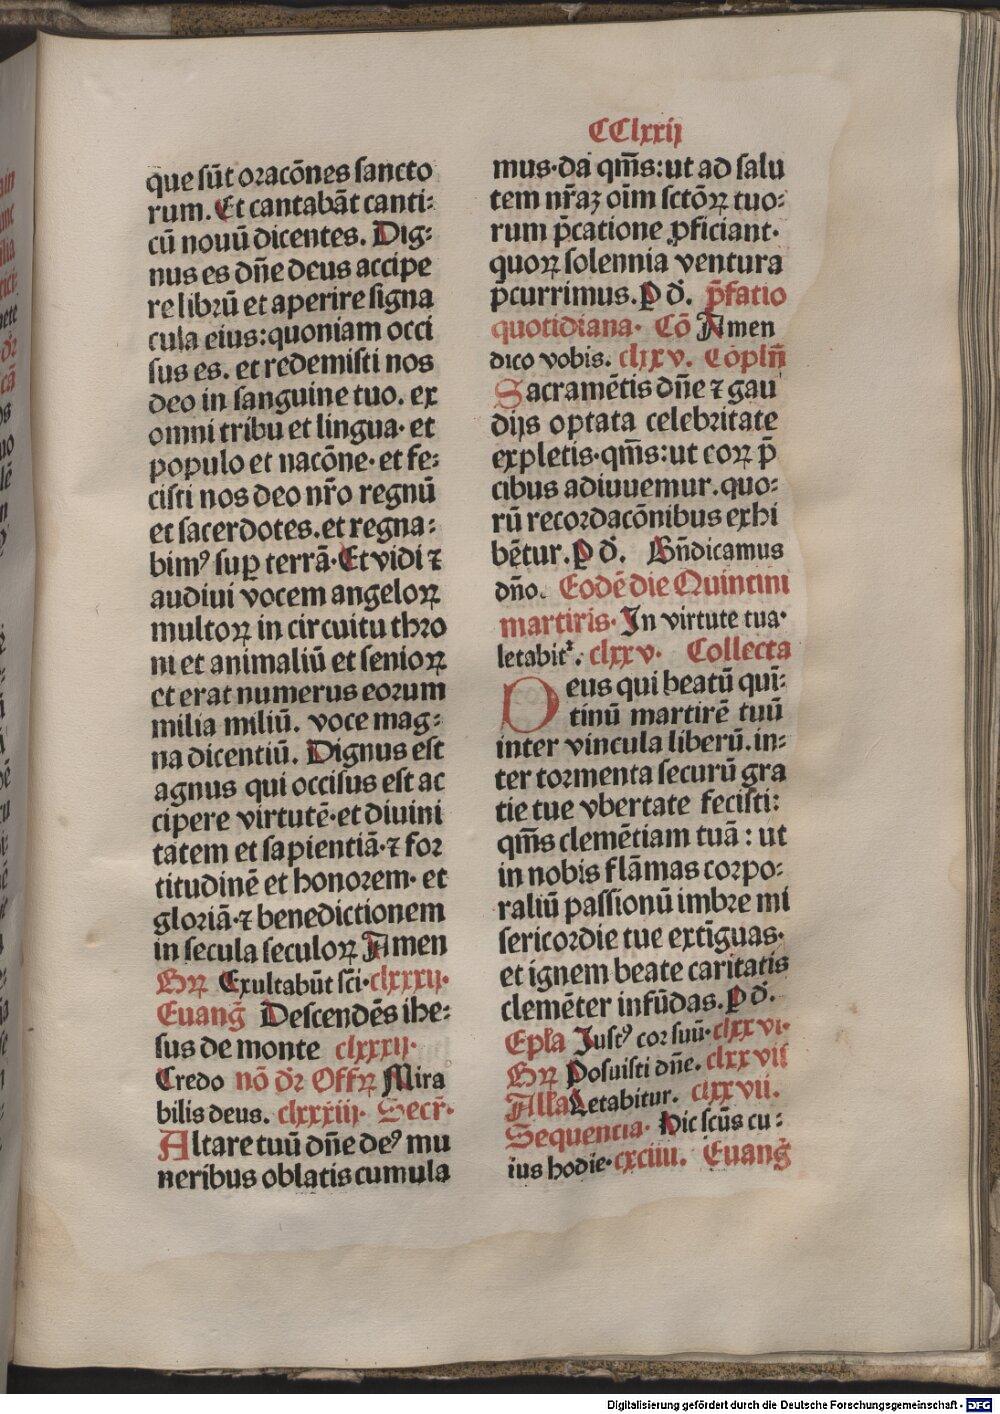 CClxxij
que sūt oracōnes sancto
rum. Et cantabāt canti:
cū nouū dicentes. Dig:
nus es dn̄e deus accipe
re librū et aperire signa
cula eius: quoniam occi
sus es. et redemisti nos
deo in sanguine tuo. ex
omni tribu et lingua· et
populo et nacōne· et fe:
cisti nos deo nr̄o regnū
et sacerdotes. et regna:
bimꝰ suꝑ terrā· Et vidi ⁊
audiui vocem angeloꝝ
multoꝝ in circuitu thro
ni et animaliū et senioꝝ
et erat numerus eorum
milia miliū. voce mag:
na dicentiū. Dignus est
agnus qui occisus est ac
cipere virtutē· et diuini
tatem et sapientiā· ⁊ for
titudinē et honorem· et
gloriā· ⁊ benedictionem
in secula seculoꝝ Amen
Gꝝ Exultabūt sc̄i· clxxxij·
Euanḡ Descendēs ihe:
sus de monte clxxxij·
Credo nō dꝛ Offꝝ Mira
bilis deus. clxxxiij· Secr̄·
Altare tuū dn̄e deꝰ mu
neribus oblatis cumula
mus· da qm̄s: ut ad salu
tem nr̄aꝫ oīm sctōꝝ tuo:
rum p̄catione ꝓficiant·
quoꝝ solennia ventura
p̄currimus. P d̄. p̄fatio
quotidiana· Cō Amen
dico vobis. clxxv. Cōpln̄
Sacramētis dn̄e ⁊ gau
dijs optata celebritate
expletis· qm̄s: ut eoꝝ p̄
cibus adiuuemur. quo:
rū recordacōnibus exhi
bētur. P d̄. Bn̄dicamus
dn̄o. Eodē die Quintini
martiris· In virtute tua·
letabit᷑. clxxv. Collecta
Deus qui beatū quī:
tinū martirē tuū
inter vincula liberū. in:
ter tormenta securū gra
tie tue vbertate fecisti:
qm̄s clemētiam tuā: ut
in nobis flāmas corpo:
raliū passionū imbre mi
sericordie tue extīguas·
et ignem beate caritatis
clemēter infūdas. P d̄.
Epl̄a Justꝰ cor suū· clxxvi·
Gꝝ Posuisti dn̄e. clxxvii
All̄a Letabitur. clxxvii.
Sequencia· Hic sc̄us cu:
ius hodie· cxciiii. Euanḡ
Digitalisierung gefördert durch die Deutsche Forschungsgemeinschaft - DFG